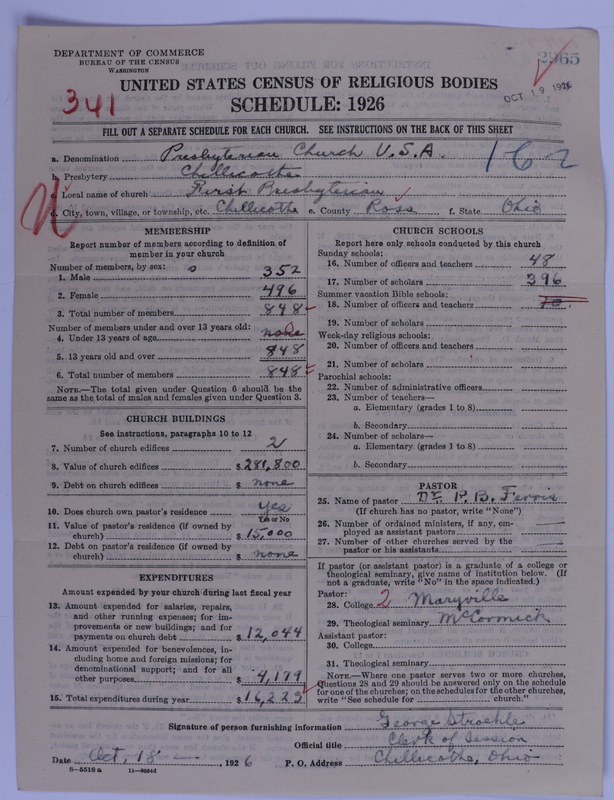 DEPARTMENT OF COMMERCE
BUREAU OF THE CENSUS
WASHINGTON
2965
OCT 19 1926
341
UNITED STATES CENSUS OF RELIGIOUS BODIES
SCHEDULE: 1926
FILL OUT A SEPARATE SCHEDULE FOR EACH CHURCH. SEE INSTRUCTIONS ON THE BACK OF THIS SHEET
162
a. Denomination Presbyterian Church U.S.A.
b. Presbytery Chillicothe
c. Local name of church First Presbyterian
d. City, town, village, or township, etc. Chillicothe e. County Ross f. State Ohio
MEMBERSHIP
Report number of members according to definition of
member in your church
Number of members, by sex:
1. Male 352
2. Female 496
3. Total number of members 848
Number of members under and over 13 years old:
4. Under 13 years of age none
5. 13 years old and over 848
6. Total number of members 848
NOTE.—The total given under Question 6 should be the
same as the total of males and females given under Question 3.
CHURCH BUILDINGS
See instructions, paragraphs 10 to 12
7. Number of church edifices 2
8. Value of church edifices $281,800
9. Debt on church edifices $ none
10. Does church own pastor's residence yes
Yes or No
11. Value of pastor's residence (if owned by
church) $15,000
12. Debt on pastor's residence (if owned by
church) $ none
EXPENDITURES
Amount expended by your church during last fiscal year
13. Amount expended for salaries, repairs,
and other running expenses; for im-
provements or new buildings; and for
payments on church debt $12,044
14. Amount expended for benevolences, in-
cluding home and foreign missions; for
denominational support; and for all
other purposes $4,179
15. Total expenditures during year $16,223
CHURCH SCHOOLS
Report here only schools conducted by this church
Sunday schools:
16. Number of officers and teachers 48
17. Number of scholars 396
Summer vacation Bible schools:
18. Number of officers and teachers
19. Number of scholars
Week-day religious schools:
20. Number of officers and teachers
21. Number of scholars
Parochial schools:
22. Number of administrative officers
23. Number of teachers—
a. Elementary (grades 1 to 8)
b. Secondary
24. Number of scholars—
a. Elementary (grades 1 to 8)
b. Secondary
PASTOR
25. Name of pastor Dr. P. B. Ferris
(If church has no pastor, write "None")
26. Number of ordained ministers, if any, em-
ployed as assistant pastors —
27. Number of other churches served by the
pastor or his assistants —
If pastor (or assistant pastor) is a graduate of a college or
theological seminary, give name of institution below. (If
not a graduate, write "No" in the space indicated.)
Pastor:
28. College 2 Maryville
29. Theological seminary McCormick
Assistant pastor:
30. College
31. Theological seminary
NOTE.—Where one pastor serves two or more churches,
Questions 28 and 29 should be answered only on the schedule
for one of the churches; on the schedules for the other churches,
write "See schedule for church."
Signature of person furnishing information George Stroehle
Official title Clerk of Session
Date Oct, 18, 1926 P. O. Address Chillicothe, Ohio
8-5518 a 11-9054d